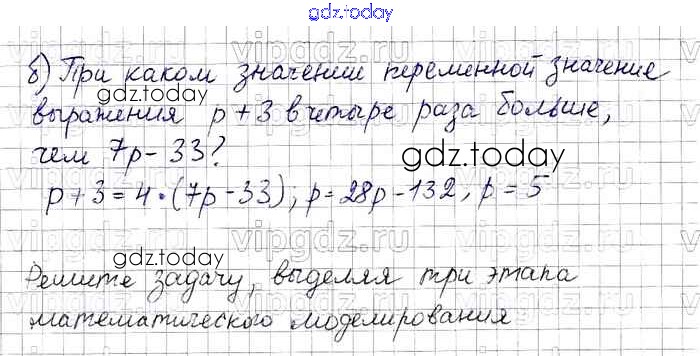 gdz.today
б) При каком значении переменной значение
gdz.today
выражения p + 3 в четыре раза больше,
чем 7p - 33?
gdz.today
p + 3 = 4 · (7p - 33); p = 28p - 132, p = 5
gdz.today
Решите задачу, выделяя три этапа
математического моделирования